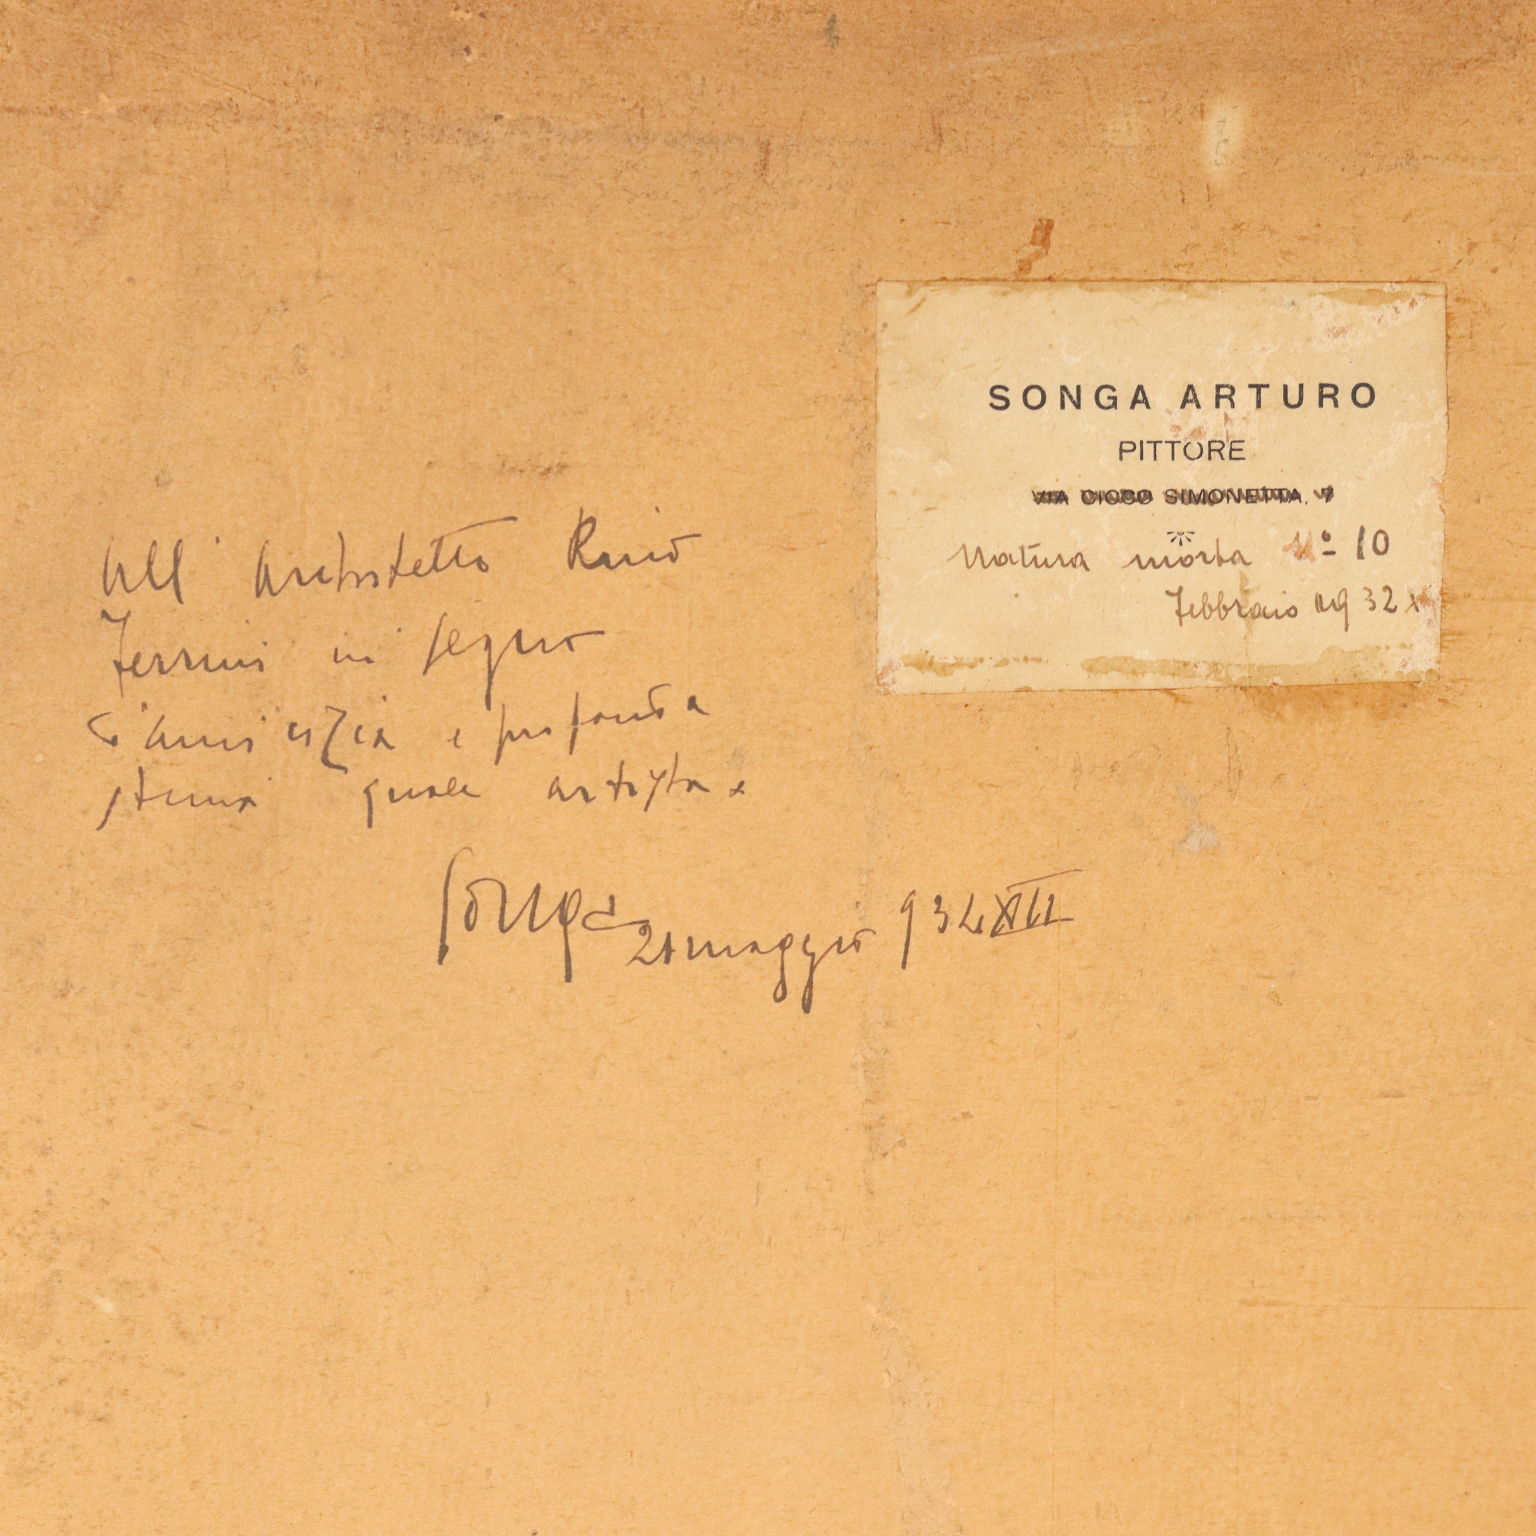 All' Architetto Renato
Ferrini in segno
d'amicizia e profonda
stima quale artista.
Songa
21 maggio 934 XII
SONGA ARTURO
PITTORE
VIA CICCO SIMONETTA, 7
Natura morta Nº 10
Febbraio 1932 X